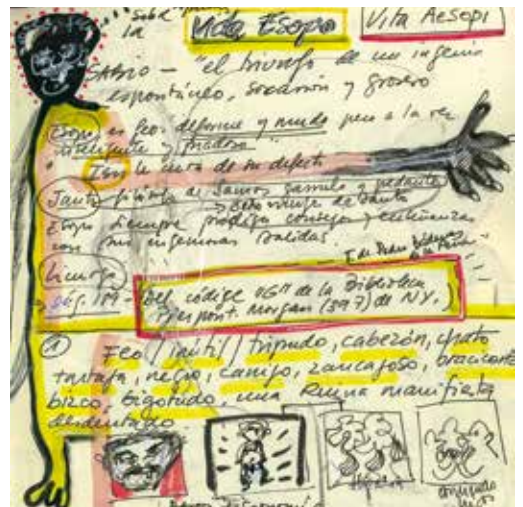 sobre
la
Vida Esopo
Vita Aesopi
SABIO – "el triunfo de un ingenio
espontáneo, socarrón y grosero
Esopo es feo deforme y mudo pero a la vez
inteligente y
Isis le cura de su defecto
Janto filósofo de Samos garrulo y pedante
Esopo siempre prodiga consejos y enseñanzas
con sus ingeniosas salidas
Licurgo
pág. 189 –
"Del códice "G" de la Biblioteca
Pierpont Morgan (397) de NY.
1
Feo / inútil / tripudo, cabezón, chato
tartaja, negro, canijo, zancajoso, bracicorto
bizco, bigotudo, una Ruina manifiesta
desdentado